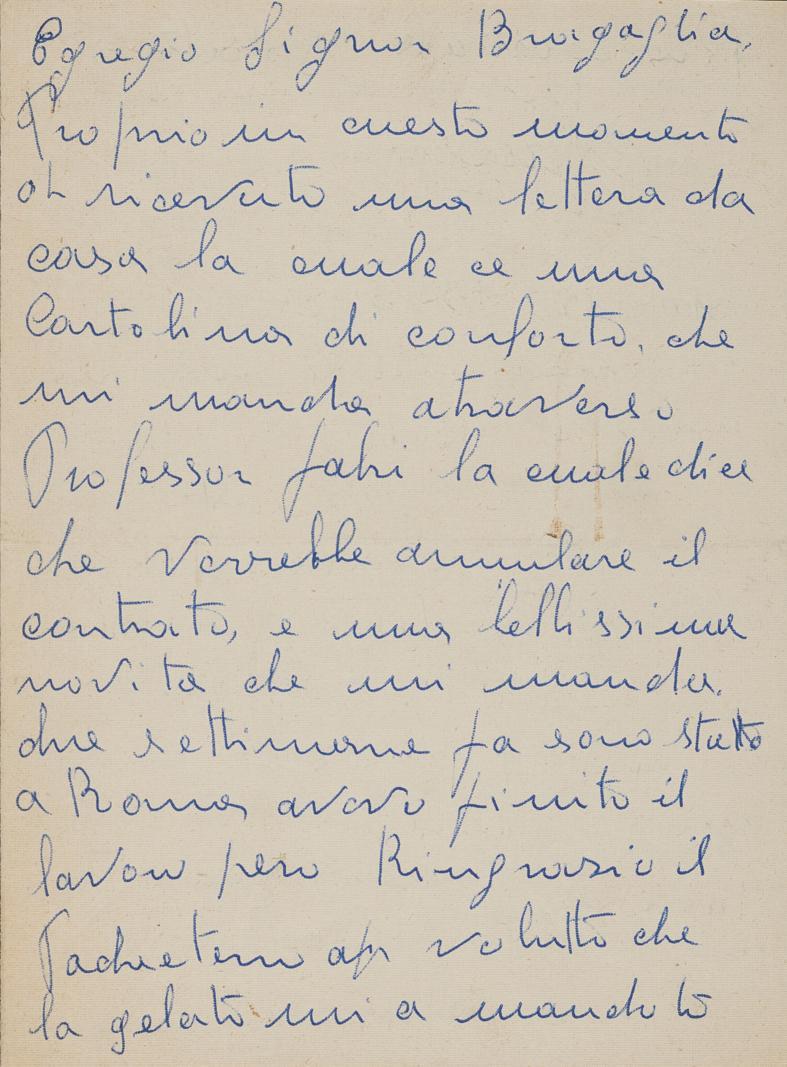 Egregio Signor Bragaglia,
Proprio in cuesto momento
oh ricevuto una lettera da
casa la cuale ce una
Cartolina di conforto, che
mi manda atraverso
Professor fabri la cuale dice
che vorrebbe annulare il
contrato, e una bellissima
novita che mi manda.
due settimane fa sono statto
a Roma avevo finito il
lavoro pero Ringrazio il
volutto che
la gelato mi a mandato